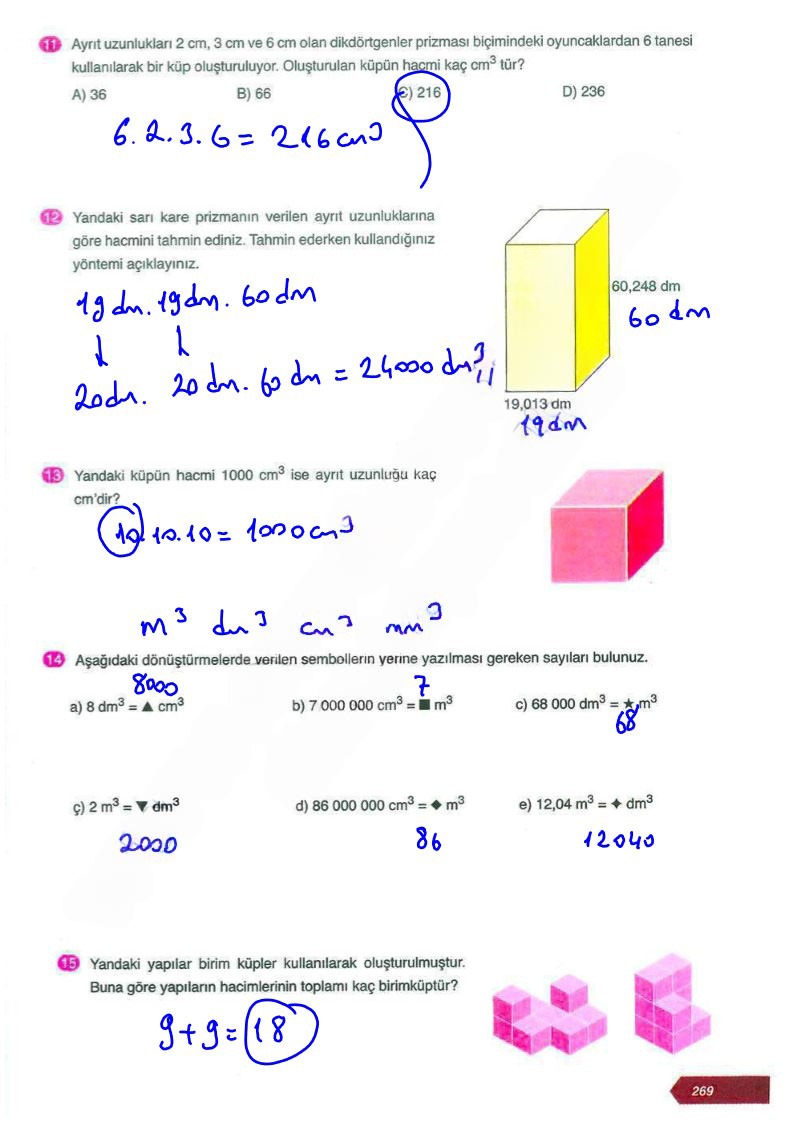 11 Ayrıt uzunlukları 2 cm, 3 cm ve 6 cm olan dikdörtgenler prizması biçimindeki oyuncaklardan 6 tanesi
kullanılarak bir küp oluşturuluyor. Oluşturulan küpün hacmi kaç cm³ tür?
A) 36 B) 66 C) 216 D) 236
6.2.3.6 = 216 cm³
12 Yandaki sarı kare prizmanın verilen ayrıt uzunluklarına
göre hacmini tahmin ediniz. Tahmin ederken kullandığınız
yöntemi açıklayınız.
60,248 dm
60 dm
19 dm. 19 dm. 60 dm
20 dm. 20 dm. 60 dm = 24000 dm³
19,013 dm
19 dm
13 Yandaki küpün hacmi 1000 cm³ ise ayrıt uzunluğu kaç
cm'dir?
10.10.10 = 1000 cm³
m³ dm³ cm³ mm³
14 Aşağıdaki dönüştürmelerde verilen sembollerin yerine yazılması gereken sayıları bulunuz.
8000 7
a) 8 dm³ = ▲ cm³ b) 7 000 000 cm³ = ■ m³ c) 68 000 dm³ = ★ m³
68
ç) 2 m³ = ▼ dm³ d) 86 000 000 cm³ = ◆ m³ e) 12,04 m³ = ✦ dm³
2000 86 12040
15 Yandaki yapılar birim küpler kullanılarak oluşturulmuştur.
Buna göre yapıların hacimlerinin toplamı kaç birimküptür?
9+9=18
269